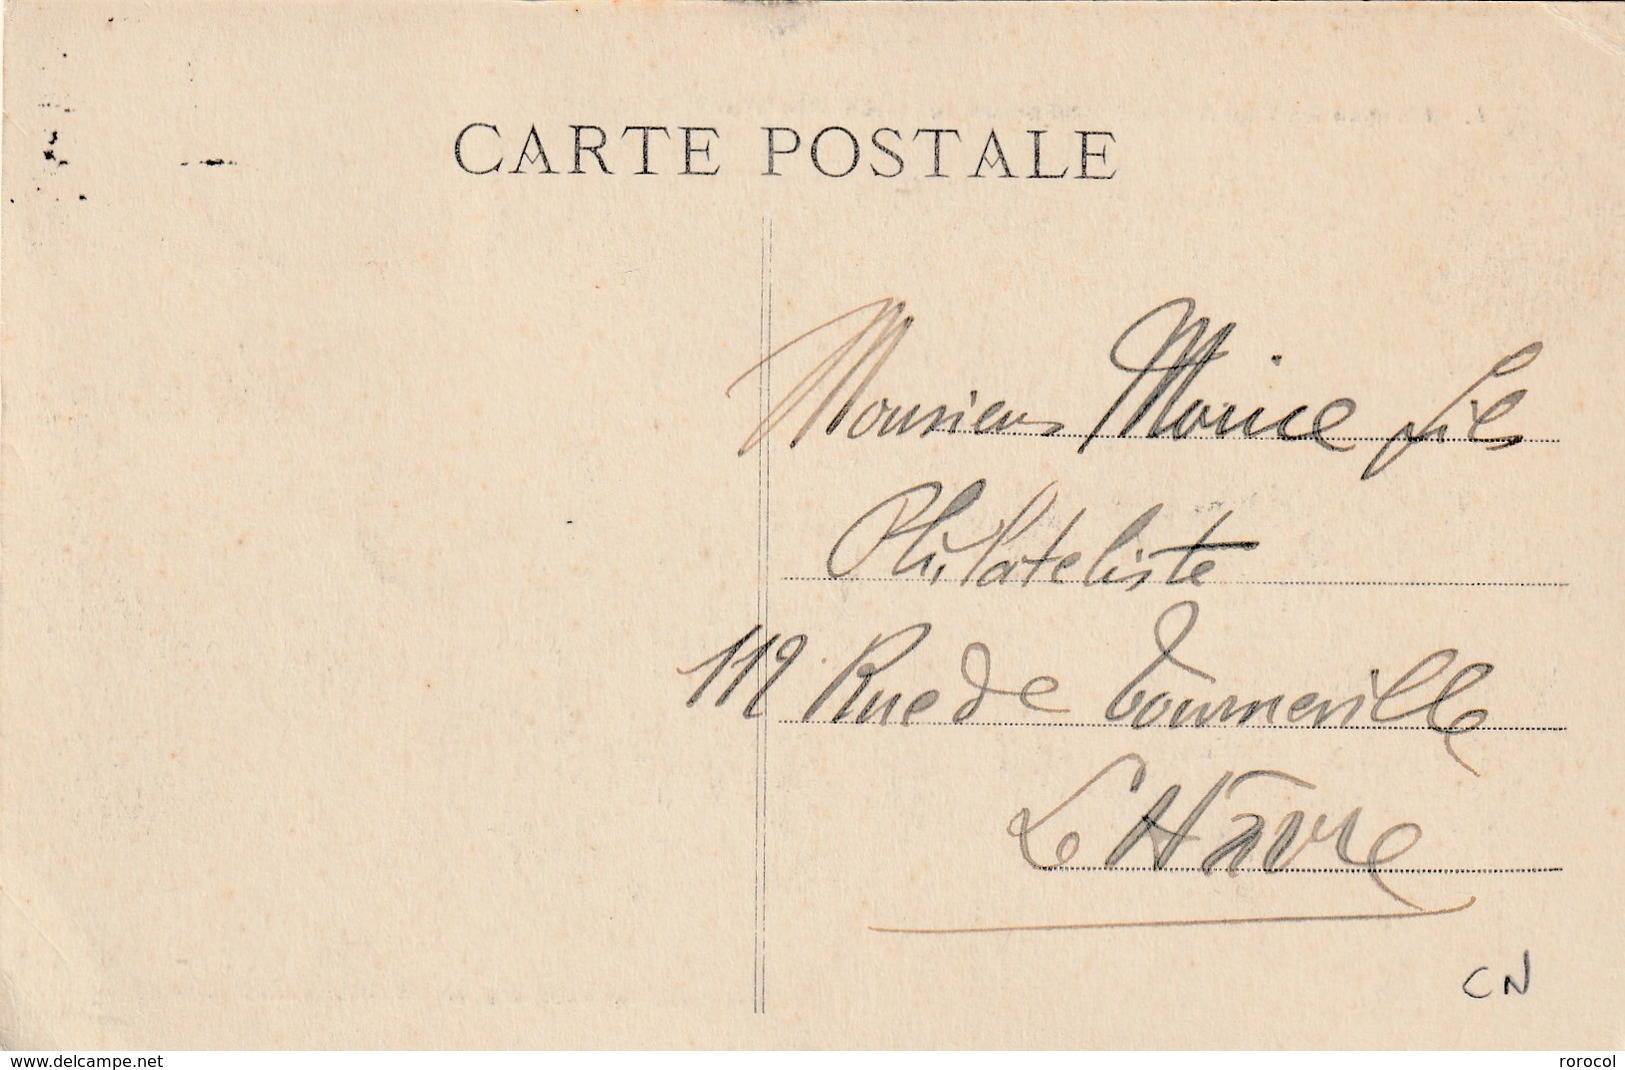 CARTE POSTALE
Monsieur Morice fils
Philateliste
112 Rue de Tourneville
Le Havre
CN
www.delcampe.net
rorocol